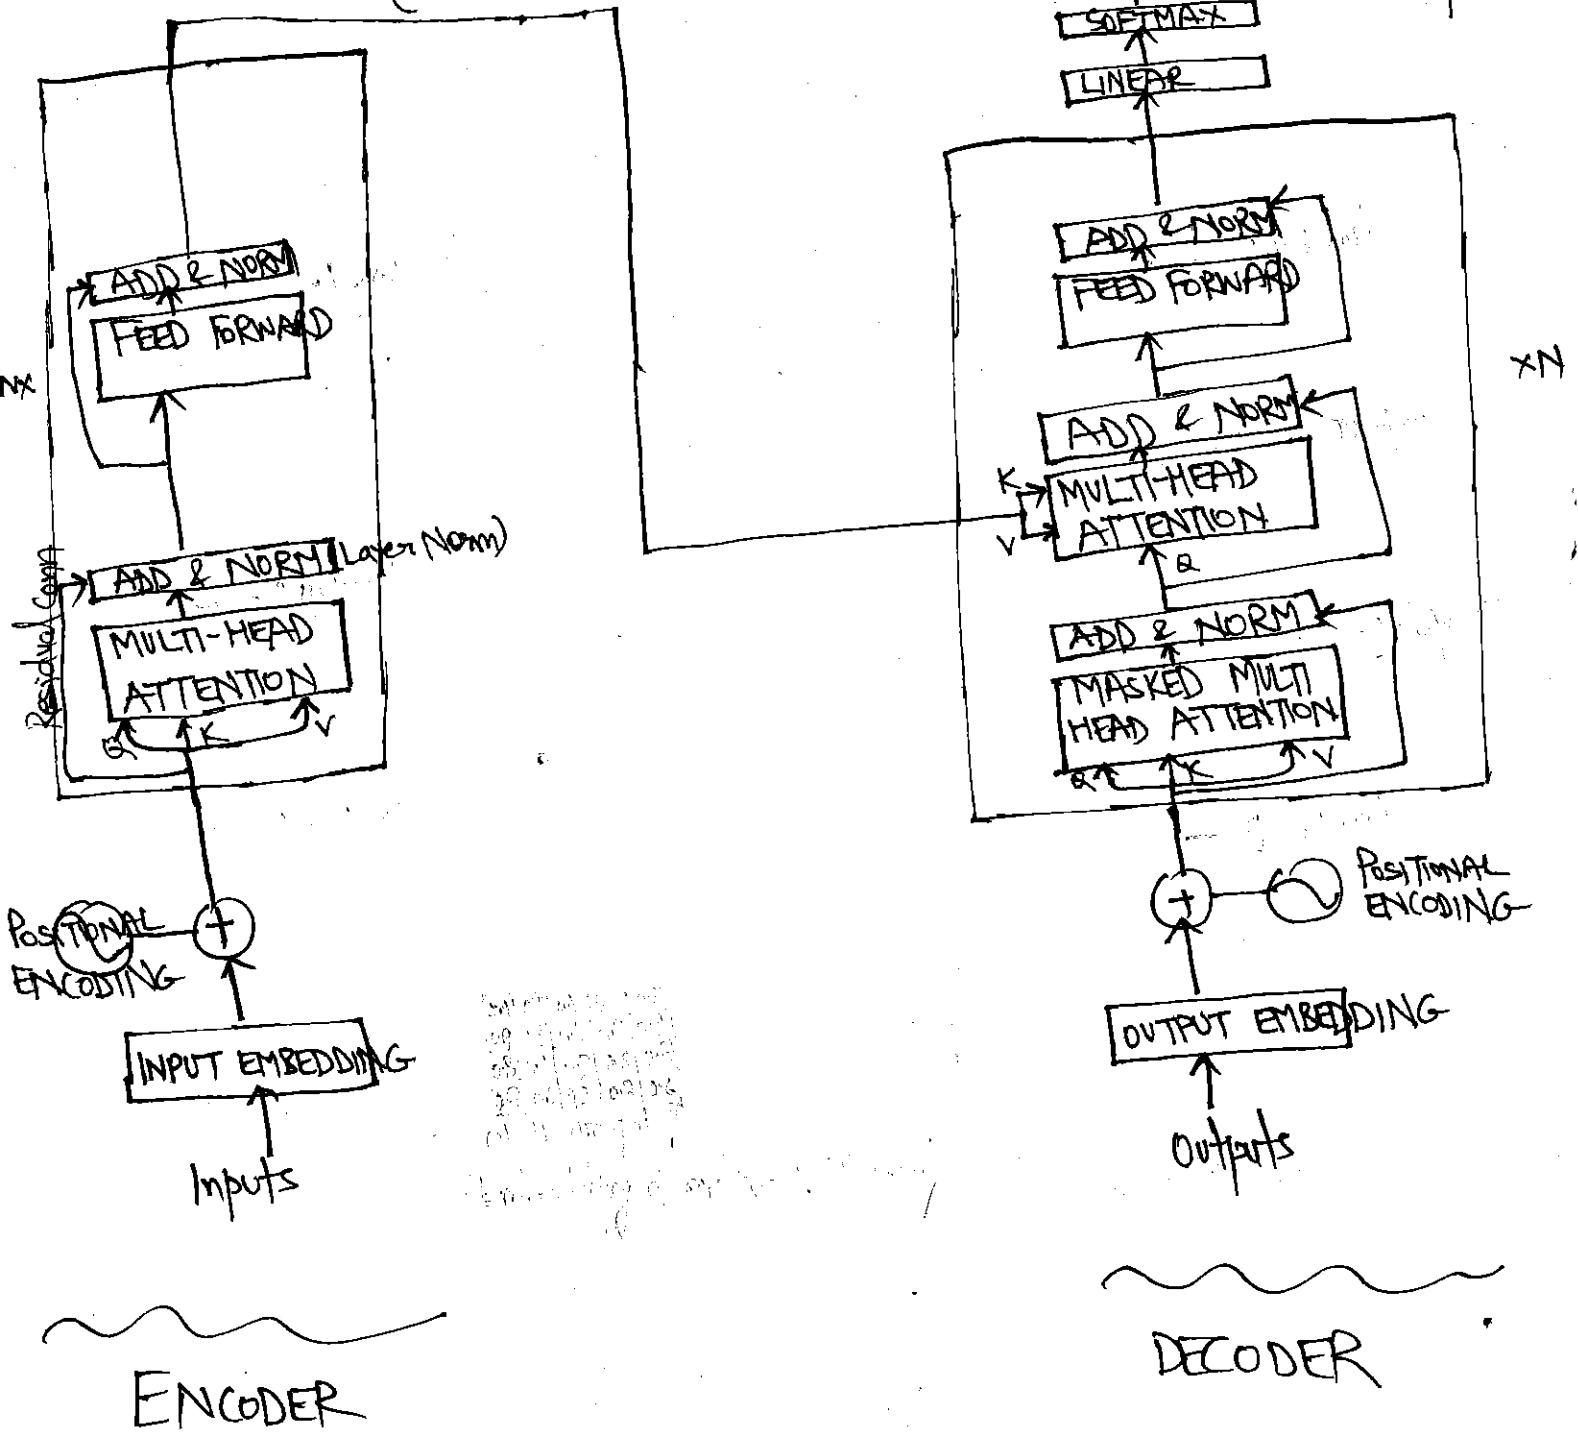 SOFTMAX
LINEAR
ADD & NORM
FEED FORWARD
NX
ADD & NORM (Layer Norm)
Residual Conn
MULTI-HEAD
ATTENTION
Q
K
V
POSITIONAL
ENCODING
+
INPUT EMBEDDING
Inputs
ENCODER
ADD & NORM
FEED FORWARD
XN
ADD & NORM
K
MULTI-HEAD
ATTENTION
V
Q
ADD & NORM
MASKED MULTI
HEAD ATTENTION
Q
K
V
+
POSITIONAL
ENCODING
OUTPUT EMBEDDING
Outputs
DECODER